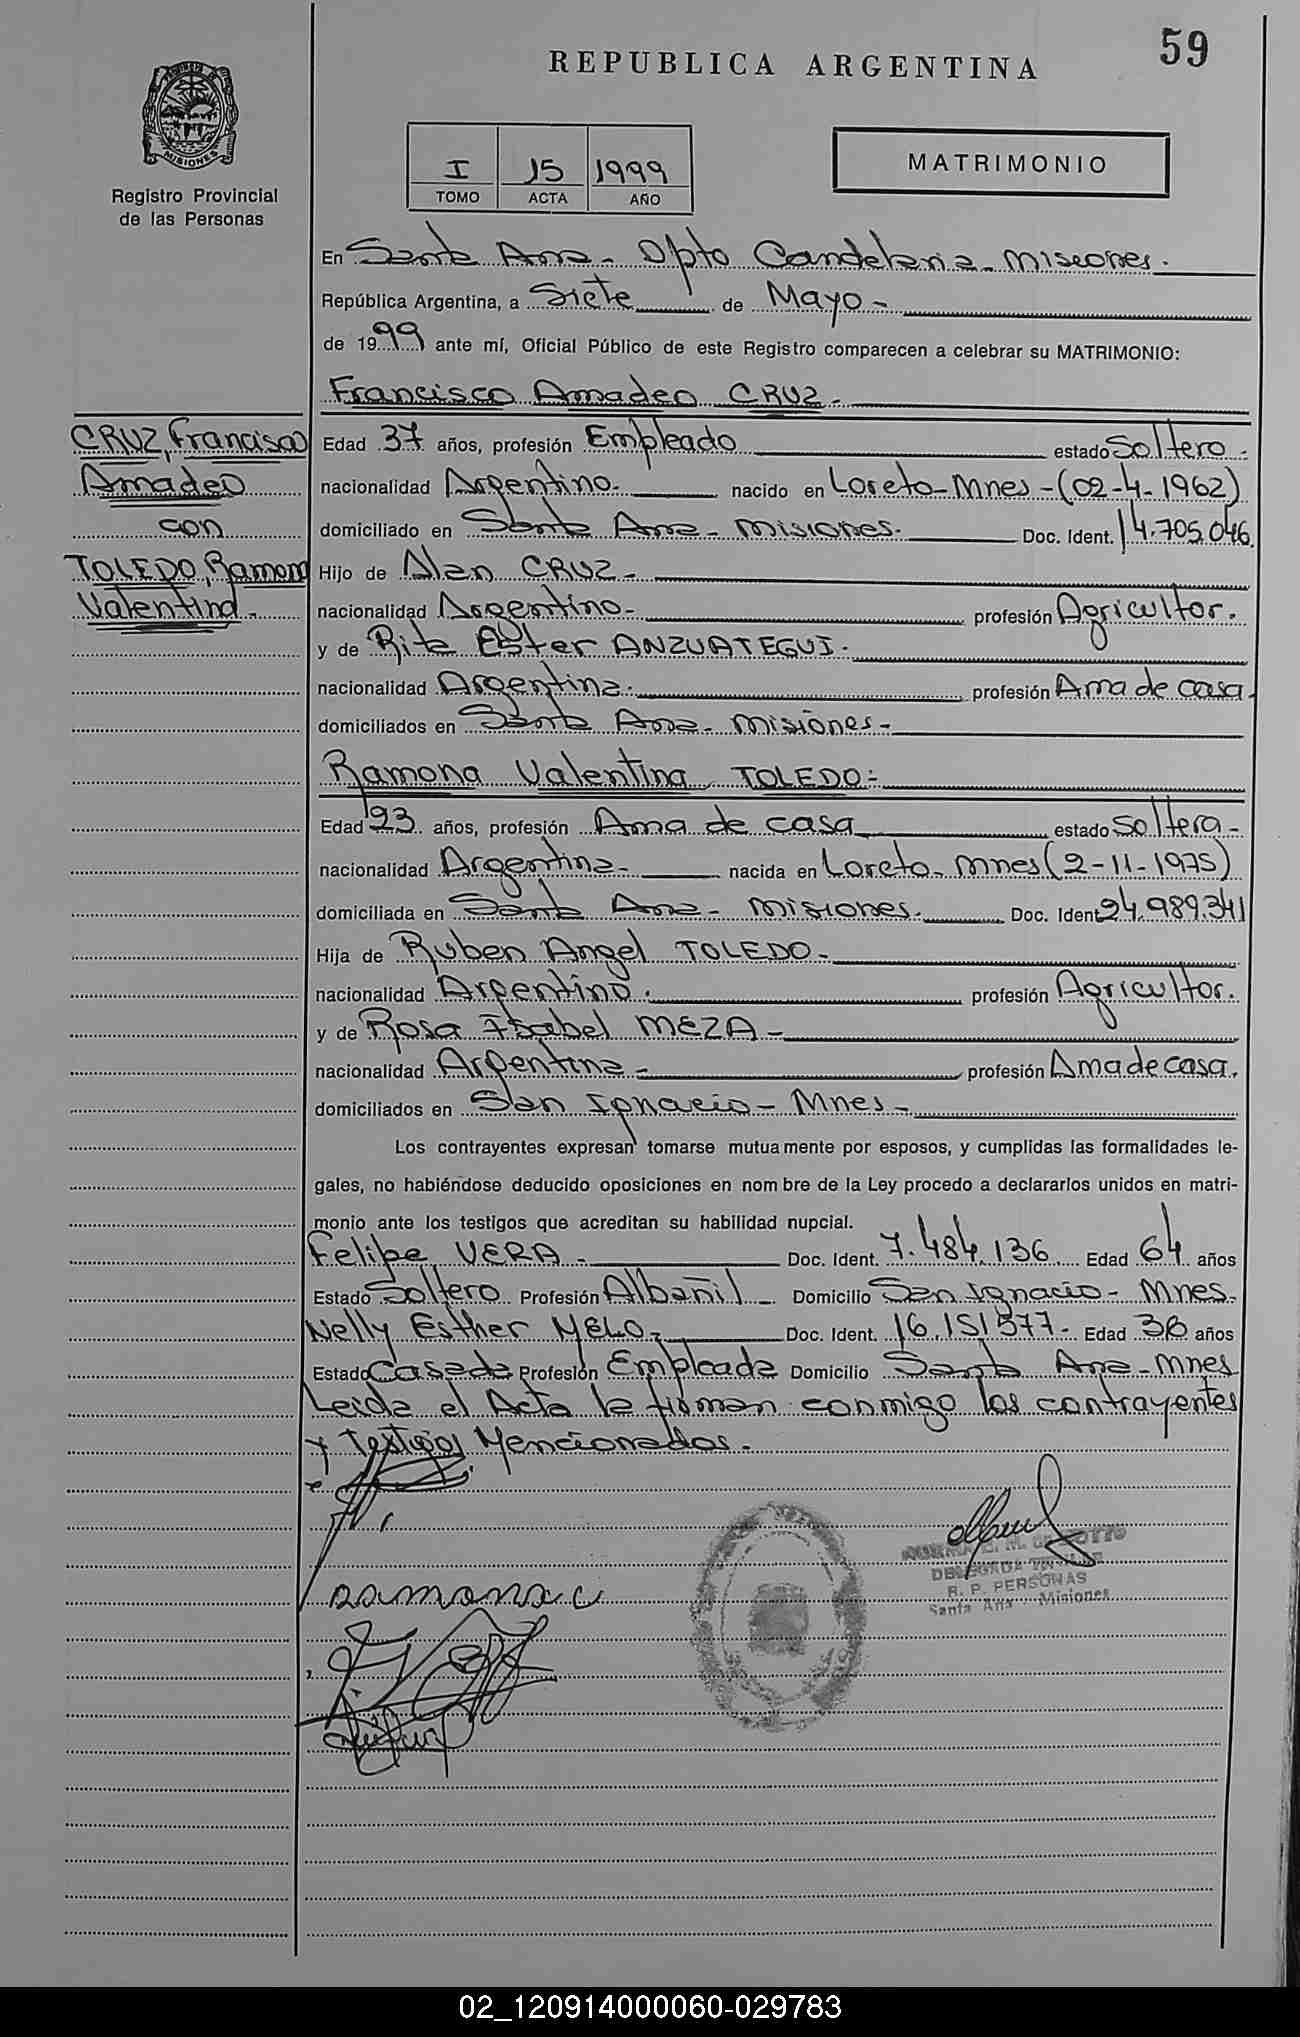 59
REPUBLICA ARGENTINA
MISIONES
Registro Provincial
de las Personas
I 15 1999
TOMO ACTA AÑO
MATRIMONIO
En Santa Ana - Dpto Candelaria - Misiones.
República Argentina, a Siete de Mayo -
de 1999 ante mí, Oficial Público de este Registro comparecen a celebrar su MATRIMONIO:
Francisco Amadeo CRUZ -
CRUZ, Francisco
Amadeo
con
TOLEDO, Ramona
Valentina -
Edad 37 años, profesión Empleado estado Soltero -
nacionalidad Argentino - nacido en Loreto - Mnes - (02-4-1962)
domiciliado en Santa Ana - Misiones - Doc. Ident. 14.705.046
Hijo de Alen CRUZ -
nacionalidad Argentino - profesión Agricultor.
y de Rita Ester ANZUATEGUI -
nacionalidad Argentina - profesión Ama de casa -
domiciliados en Santa Ana - Misiones -
Ramona Valentina TOLEDO -
Edad 23 años, profesión Ama de casa estado Soltera -
nacionalidad Argentina - nacida en Loreto - Mnes (2-11-1975)
domiciliada en Santa Ana - Misiones - Doc. Ident 24.989.341
Hija de Ruben Angel TOLEDO -
nacionalidad Argentino - profesión Agricultor.
y de Rosa Isabel MEZA -
nacionalidad Argentina - profesión Ama de casa.
domiciliados en San Ignacio - Mnes -
Los contrayentes expresan tomarse mutuamente por esposos, y cumplidas las formalidades le-
gales, no habiéndose deducido oposiciones en nombre de la Ley procedo a declararlos unidos en matri-
monio ante los testigos que acreditan su habilidad nupcial.
Felipe VERA - Doc. Ident. 7.484.136 Edad 64 años
Estado Soltero Profesión Albañil - Domicilio San Ignacio - Mnes -
Nelly Esther MELO - Doc. Ident. 16.151377 - Edad 36 años
Estado Casada Profesión Empleada Domicilio Santa Ana - Mnes
Leida el Acta la firman conmigo los contrayentes
y Testigos Mencionados.
DELEGADA TITULAR
R. P. PERSONAS
Santa Ana - Misiones
Ramona
02_120914000060-029783